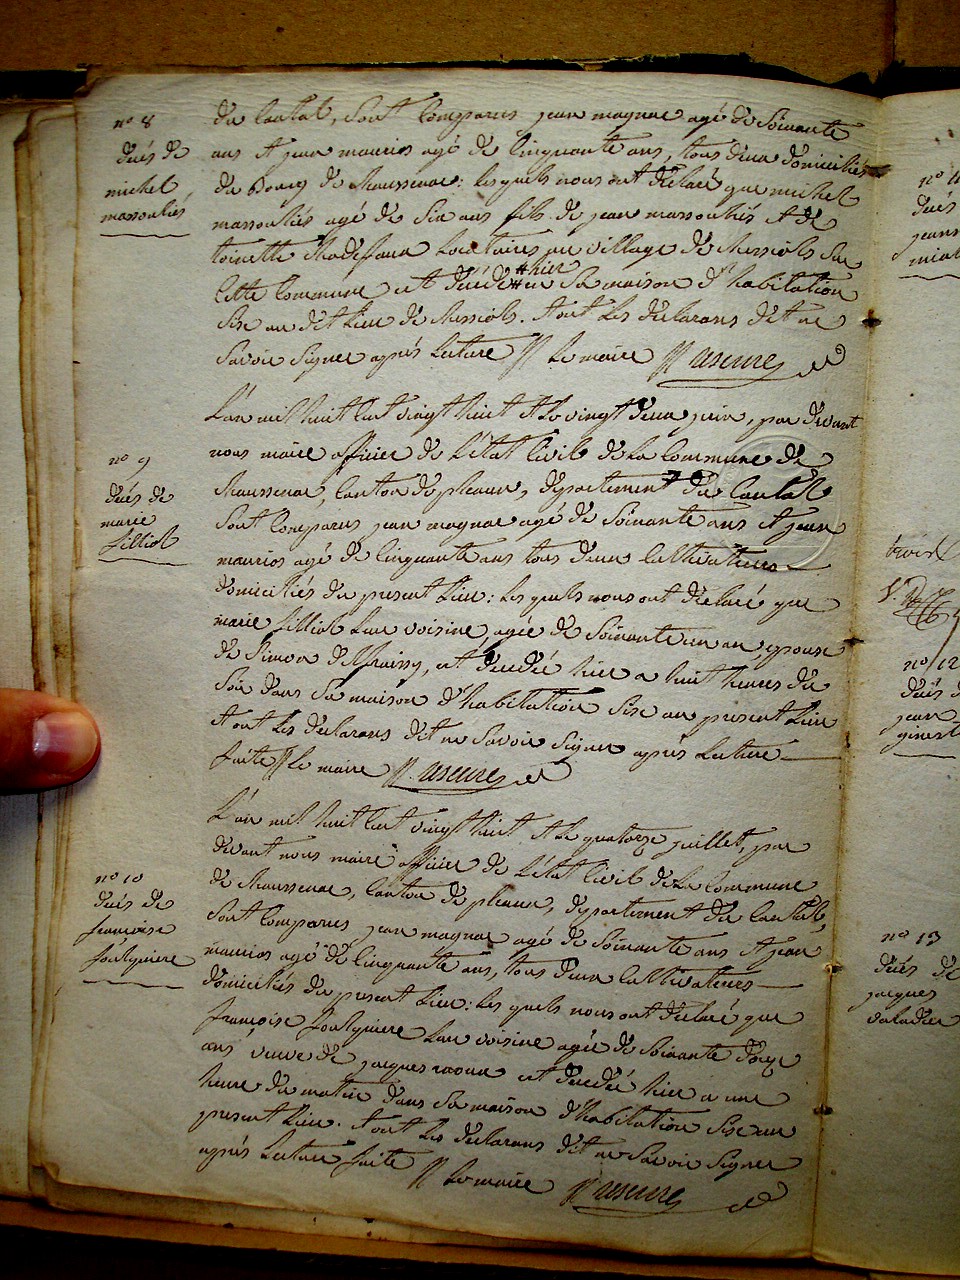 nº 8
décés de
michel
massouliés
du Cantal, sont Comparus jean magnac agé de Soixante
ans et jean maurios agé de Cinquante ans, tous deux domiciliés
du Bourg de Chaussenac: lesquels nous ont déclaré que michel
massouliés agé de Six ans fils de jean massouliés et de
toinette locataires au village de Messiols Sur
Cette Commune est décédé hier en Sa maison d'habitation
Sise au dit Lieu de Messiols. et ont les déclarans dit ne
Savoir Signer aprés Lecture // Le maire
nº 9
décés de
marie
filliol
L'an mil huit Cent vingt huit et le vingt deux juin, par devant
nous maire officier de L'état Civil de La Commune de
Chaussenac, Canton de pleaux, département du Cantal
Sont Comparus jean magnac agé de Soixante ans et jean
maurios agé de Cinquante ans tous deux Cultivateurs
domiciliés du present Lieu: Les quels nous ont déclaré que
marie filliol Leur voisine, agée de Soixante un an epouse
de Simon est decedée hier a huit heures du
Soir dans Sa maison d'habitation Sise au present Lieu
et ont les déclarans dit ne Savoir Signer aprés Lecture
faite // Le maire
nº 10
décés de
françoise
foulquiere
L'an mil huit Cent vingt huit et Le quatorze juillet, par
devant nous maire officier de L'état Civil de La Commune
de Chaussenac, Canton de pleaux, département du Cantal,
Sont Comparus jean magnac agé de Soixante ans et jean
maurios agé de Cinquante ans, tous deux Cultivateurs
domiciliés du present Lieu: Les quels nous ont déclaré que
françoise foulquiere Leur voisine agée de Soixante douze
ans veuve de jacques est decedée hier a une
heure du matin dans Sa maison d'habitation Sise au
present Lieu. et ont Les déclarans dit ne Savoir Signer
aprés Lecture faite // Le maire
nº 11
décés
jeann
nº 12
décés d
jean
ginest
nº 13
décés de
jacques
valadier